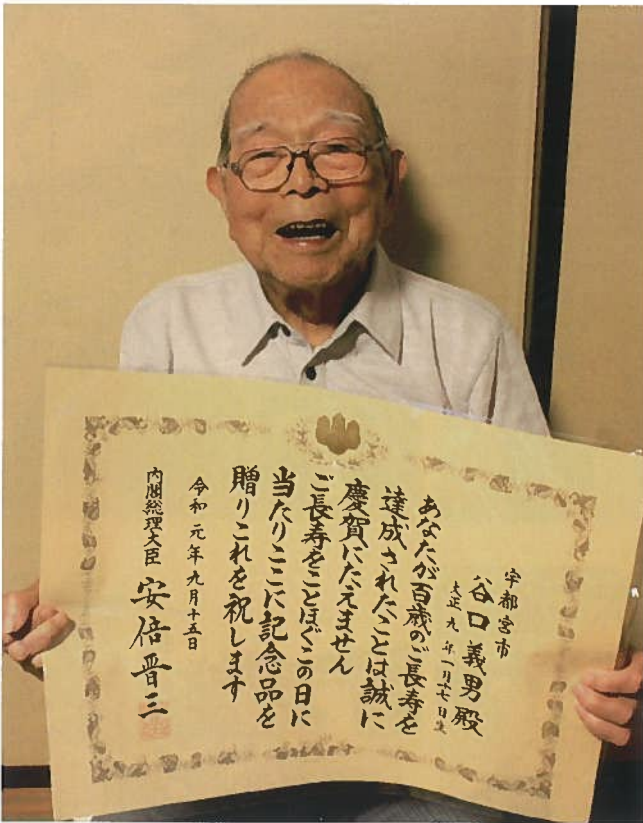 宇都宮市
谷口義男殿
大正九年一月十七日生
あなたが百歳のご長寿を
達成されたことは誠に
慶賀にたえません
ご長寿をことほぐこの日に
当たりここに記念品を
贈りこれを祝します
令和元年九月十五日
内閣総理大臣 安倍晋三